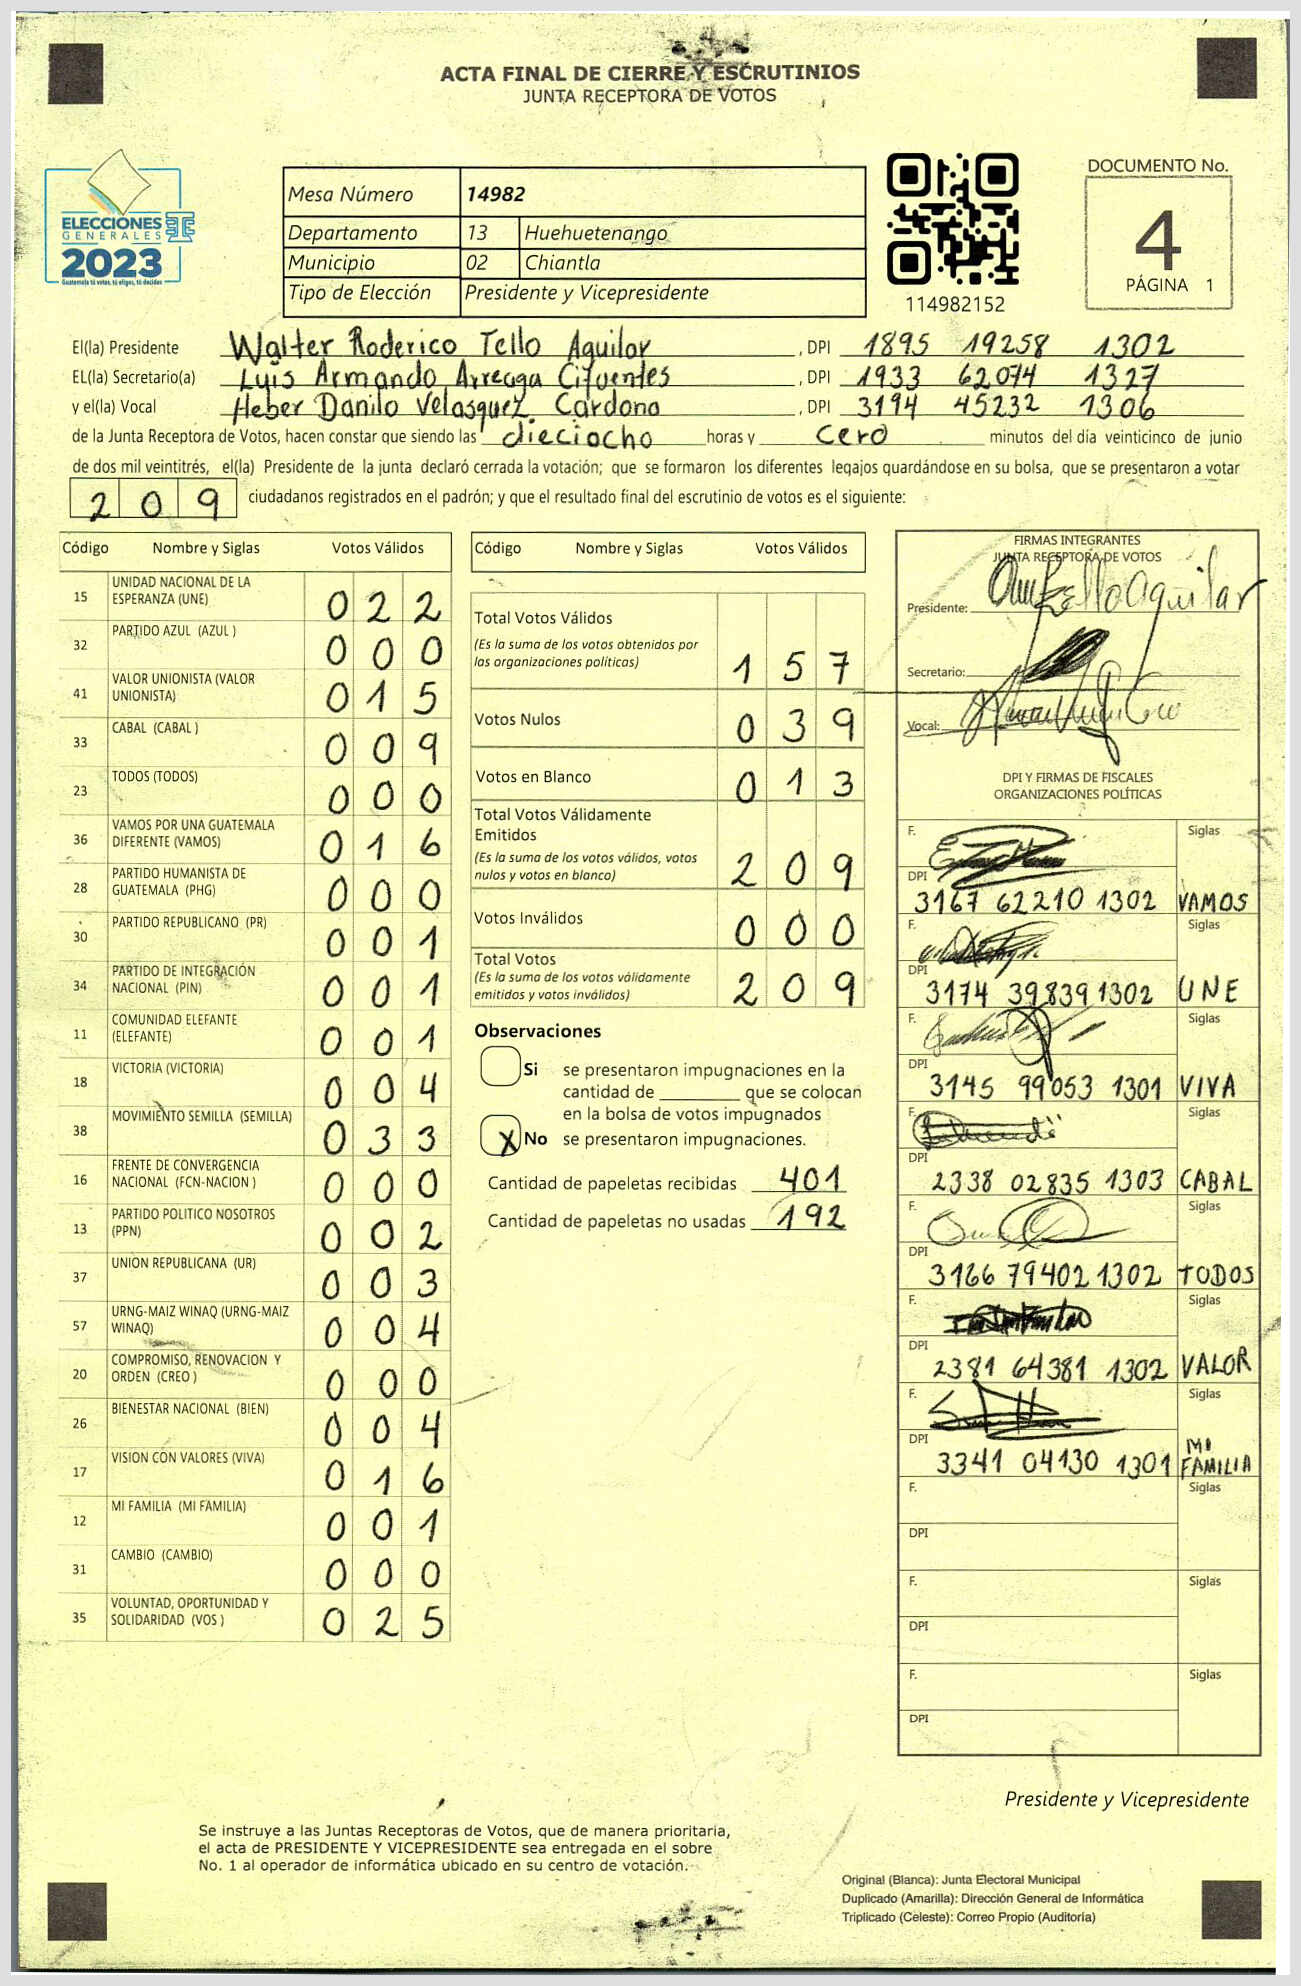 ACTA FINAL DE CIERRE Y ESCRUTINIOS
JUNTA RECEPTORA DE VOTOS
ELECCIONES
GENERALES
2023
Guatemala tú votas, tú eliges, tú decides
Mesa Número 14982
Departamento 13 Huehuetenango
Municipio 02 Chiantla
Tipo de Elección Presidente y Vicepresidente
114982152
DOCUMENTO No.
4
PÁGINA 1
El(la) Presidente Walter Roderico Tello Aguilar , DPI 1895 19258 1302
EL(la) Secretario(a) Luis Armando Arreaga Cifuentes , DPI 1933 62074 1327
y el(la) Vocal Heber Danilo Velasquez Cardona , DPI 3194 45232 1306
de la Junta Receptora de Votos, hacen constar que siendo las dieciocho horas y cero minutos del día veinticinco de junio
de dos mil veintitrés, el(la) Presidente de la junta declaró cerrada la votación; que se formaron los diferentes legajos guardándose en su bolsa, que se presentaron a votar
209 ciudadanos registrados en el padrón; y que el resultado final del escrutinio de votos es el siguiente:
Código Nombre y Siglas Votos Válidos
15 UNIDAD NACIONAL DE LA ESPERANZA (UNE) 022
32 PARTIDO AZUL (AZUL ) 000
41 VALOR UNIONISTA (VALOR UNIONISTA) 015
33 CABAL (CABAL ) 009
23 TODOS (TODOS) 000
36 VAMOS POR UNA GUATEMALA DIFERENTE (VAMOS) 016
28 PARTIDO HUMANISTA DE GUATEMALA (PHG) 000
30 PARTIDO REPUBLICANO (PR) 001
34 PARTIDO DE INTEGRACIÓN NACIONAL (PIN) 001
11 COMUNIDAD ELEFANTE (ELEFANTE) 001
18 VICTORIA (VICTORIA) 004
38 MOVIMIENTO SEMILLA (SEMILLA) 033
16 FRENTE DE CONVERGENCIA NACIONAL (FCN-NACION ) 000
13 PARTIDO POLITICO NOSOTROS (PPN) 002
37 UNION REPUBLICANA (UR) 003
57 URNG-MAIZ WINAQ (URNG-MAIZ WINAQ) 004
20 COMPROMISO, RENOVACION Y ORDEN (CREO ) 000
26 BIENESTAR NACIONAL (BIEN) 004
17 VISION CON VALORES (VIVA) 016
12 MI FAMILIA (MI FAMILIA) 001
31 CAMBIO (CAMBIO) 000
35 VOLUNTAD, OPORTUNIDAD Y SOLIDARIDAD (VOS ) 025
Código Nombre y Siglas Votos Válidos
Total Votos Válidos
(Es la suma de los votos obtenidos por
las organizaciones políticas) 157
Votos Nulos 039
Votos en Blanco 013
Total Votos Válidamente
Emitidos
(Es la suma de los votos válidos, votos
nulos y votos en blanco) 209
Votos Inválidos 000
Total Votos
(Es la suma de los votos válidamente
emitidos y votos inválidos) 209
Observaciones
Si se presentaron impugnaciones en la
cantidad de ________ que se colocan
en la bolsa de votos impugnados
X No se presentaron impugnaciones.
Cantidad de papeletas recibidas 401
Cantidad de papeletas no usadas 192
FIRMAS INTEGRANTES
JUNTA RECEPTORA DE VOTOS
Presidente: Tello Aguilar
Secretario:
Vocal:
DPI Y FIRMAS DE FISCALES
ORGANIZACIONES POLÍTICAS
F. Siglas
DPI 3167 62210 1302 VAMOS
F. Siglas
DPI 3174 39839 1302 UNE
F. Siglas
DPI 3145 99053 1301 VIVA
F. Siglas
DPI 2338 02835 1303 CABAL
F. Siglas
DPI 3166 79402 1302 TODOS
F. Siglas
DPI 2381 64381 1302 VALOR
F. Siglas
DPI 3341 04130 1301 MI FAMILIA
F. Siglas
DPI
F. Siglas
DPI
F. Siglas
DPI
Presidente y Vicepresidente
Se instruye a las Juntas Receptoras de Votos, que de manera prioritaria,
el acta de PRESIDENTE Y VICEPRESIDENTE sea entregada en el sobre
No. 1 al operador de informática ubicado en su centro de votación.
Original (Blanca): Junta Electoral Municipal
Duplicado (Amarilla): Dirección General de Informática
Triplicado (Celeste): Correo Propio (Auditoría)